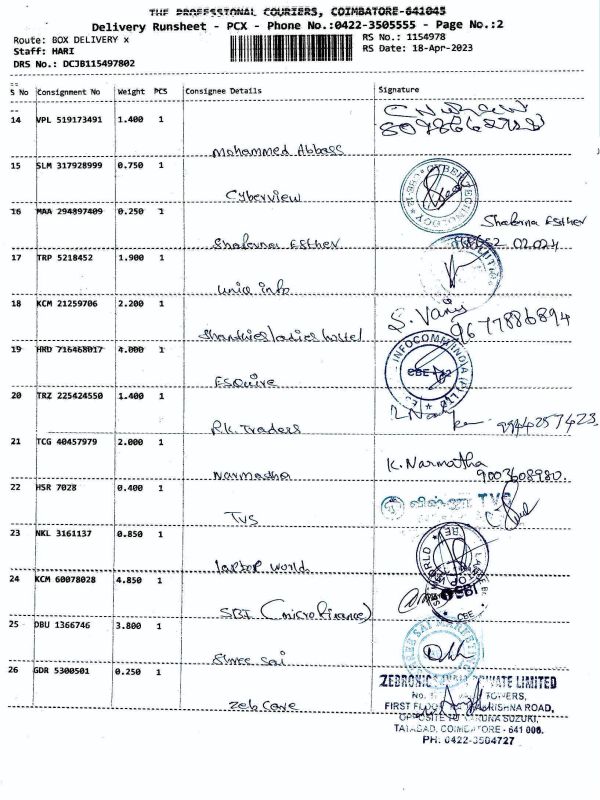 THE PROFESSIONAL COURIERS, COIMBATORE-641045
Delivery Runsheet - PCX - Phone No.:0422-3505555 - Page No.:2
Route: BOX DELIVERY x
RS No.: 1154978
Staff: HARI
RS Date: 18-Apr-2023
DRS No.: DCJB115497802
S No Consignment No Weight PCS Consignee Details Signature
14 VPL 519173491 1.400 1
Mohammed Abbass
15 SLM 317928999 0.750 1
Cyberview
16 MAA 294897409 0.250 1
Shaferna Esther
Shaferna Esther
17 TRP 5218452 1.900 1
Uniq info
18 KCM 21259706 2.200 1
S. Vani
9677886894
Shandhies ladies hostel
19 HRD 716468017 4.000 1
INFOCOMM INDIA (P) LTD
CBE
Esquire
20 TRZ 225424550 1.400 1
9944257423
R.K. Traders
21 TCG 40457979 2.000 1
K. Narmatha
9003608980.
Narmatha
22 HSR 7028 0.400 1
TVS
TVS
23 NKL 3161137 0.850 1
LAPTOP WORLD
laptop world
24 KCM 60078028 4.850 1
SBI
CBE
SBI (microfinance)
25 DBU 1366746 3.800 1
SHREE SAI
Shree Sai
26 GDR 5300501 0.250 1
ZEBRONICS INDIA PRIVATE LIMITED
TOWERS,
FIRST FLOOR
KRISHNA ROAD,
OPPOSITE TO VARUNA SUZUKI,
TATABAD, COIMBATORE - 641 006.
PH: 0422-3504727
Zeb Care